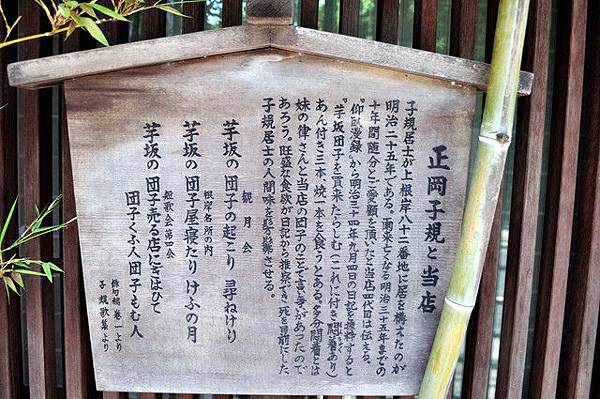 正岡子規と当店
子規居士が上根岸八十二番地に居を構えたのが
明治二十五年である。爾来亡くなる明治三十五年までの
十年間随分とご愛顧を頂いたと当店四代目は伝える。
"仰臥漫録"から明治三十四年九月四日の日記を抜粋すると
"芋坂団子を買来たらしむ(これに付き悶着あり)
あん付き三本、焼一本を食うとある。多分悶着とは
妹の律さんと当店の団子のことで言い争があったので
あろう。旺盛な食欲が日記から推察でき、死を目前にした
子規居士の人間味を髣髴させる。
観月会
芋坂の団子の起こり 尋ねけり
根岸名所の内
芋坂の団子屋寝たり けふの月
短歌会第四会
芋坂の団子売る店にぎはひて
団子くふ人団子もむ人
俳句稿 巻一より
子規歌集より